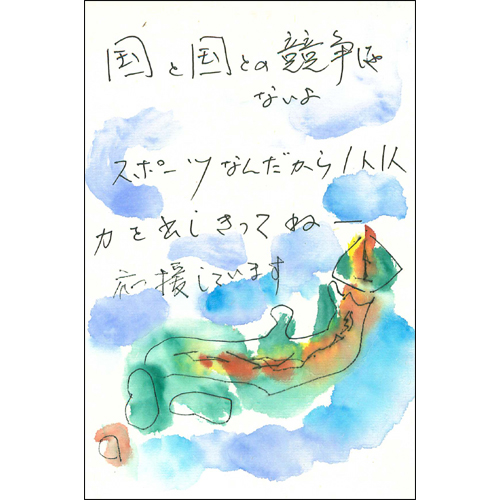 国と国との競争は
ないよ
スポーツなんだから1人1人
力を出しきってねー
応援しています